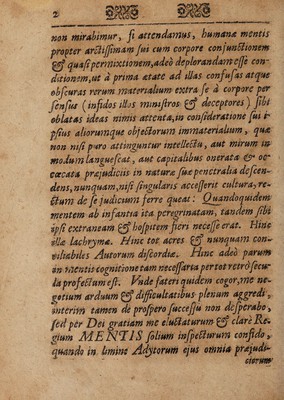 2
non mirabimur, si attendamus, humanæ mentis
propter arctissimam sui cum corpore conjunctionem
& quasi permixtionem, adeò deplorandam esse con-
ditionem, ut à prima ætate ad illas confusas atque
obscuras rerum materialium extra se à corpore per
sensus (infidos illos ministros & deceptores) sibi
oblatas ideas nimis attenta, in consideratione sui i-
psius aliorumque objectorum immaterialium, quæ
non nisi puro attinguntur intellectu, aut mirum in
modum languescat, aut capitalibus onerata & oc-
cœcata præjudiciis in naturæ suæ penetralia descen-
dens, nunquam, nisi singularis accesserit cultura, re-
ctum de se judicium ferre queat: Quandoquidem
mentem ab infantia ita peregrinatam, tandem sibi
ipsi extraneam & hospitem fieri necesse erat. Hinc
illæ lachrymæ. Hinc tot acres & nunquam con-
ciliabiles Autorum discordiæ. Hinc adeò parum
in mentis cognitione tam necessaria per tot retrò secu-
la profectum est. Unde fateri quidem cogor, me ne-
gotium arduum & difficultatibus plenum aggredi,
interim tamen de prospero successu non despe­rabo,
sed per Dei gratiam me eluctaturum & clarè Re-
gium MENTIS solium inspecturum confido,
quando in limine Adytorum ejus omnia præjudi-
ciorum